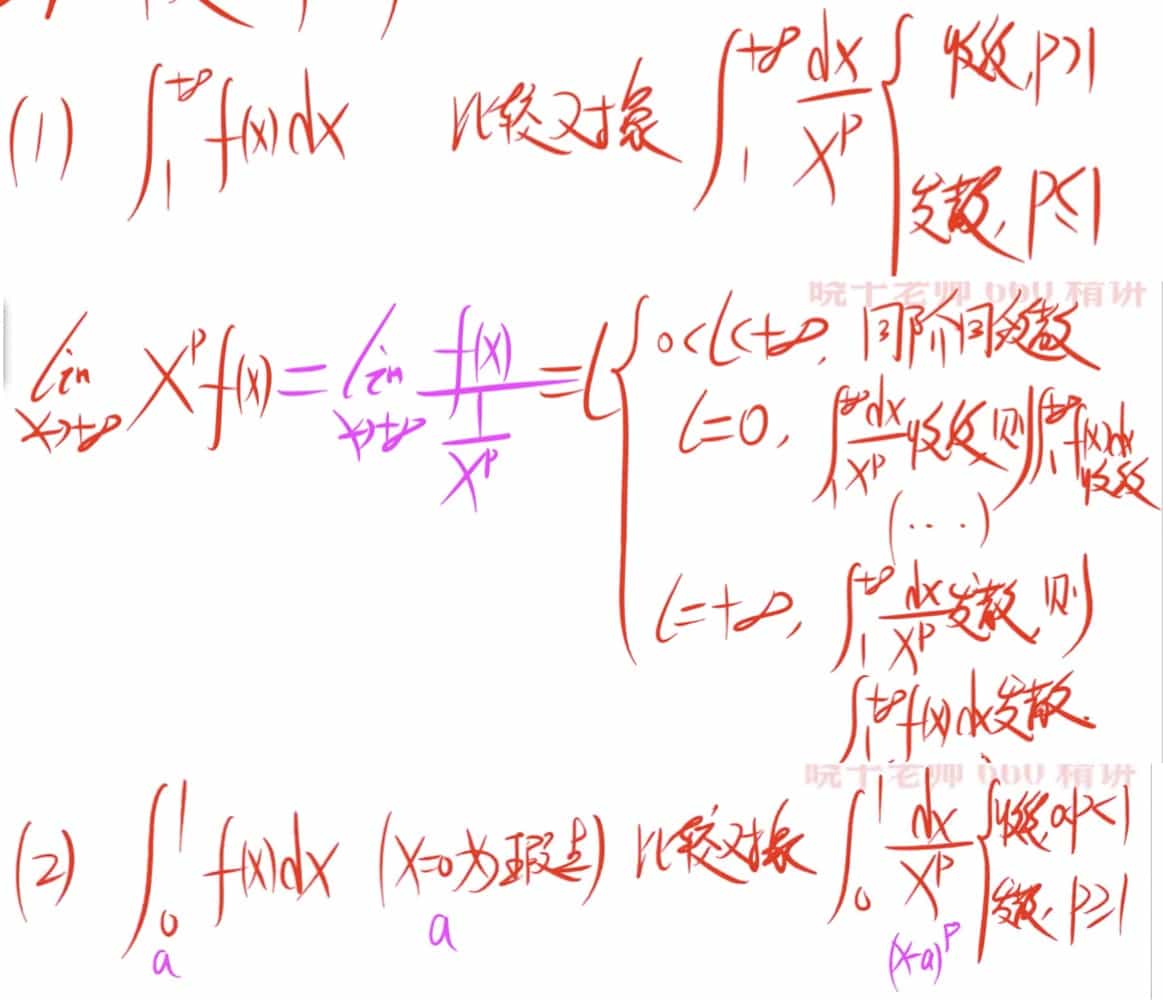 (1) ∫₁^{+∞} f(x)dx 比较对象 ∫₁^{+∞} dx/x^p { 收敛, p>1
发散, p≤1
晓千老师 660 精讲
lim_{x→+∞} x^p f(x) = lim_{x→+∞} f(x)/(1/x^p) = l { 0<l<+∞, 同阶同敛散
l=0, ∫₁^{+∞} dx/x^p 收敛, 则 ∫₁^{+∞} f(x)dx 收敛
(...)
l=+∞, ∫₁^{+∞} dx/x^p 发散, 则
∫₁^{+∞} f(x)dx 发散.
晓千老师 660 精讲
(2) ∫₀¹ f(x)dx (x=0为瑕点) 比较对象 ∫₀¹ dx/x^p { 收敛, 0<p<1
发散, p≥1
a a (x-a)^p